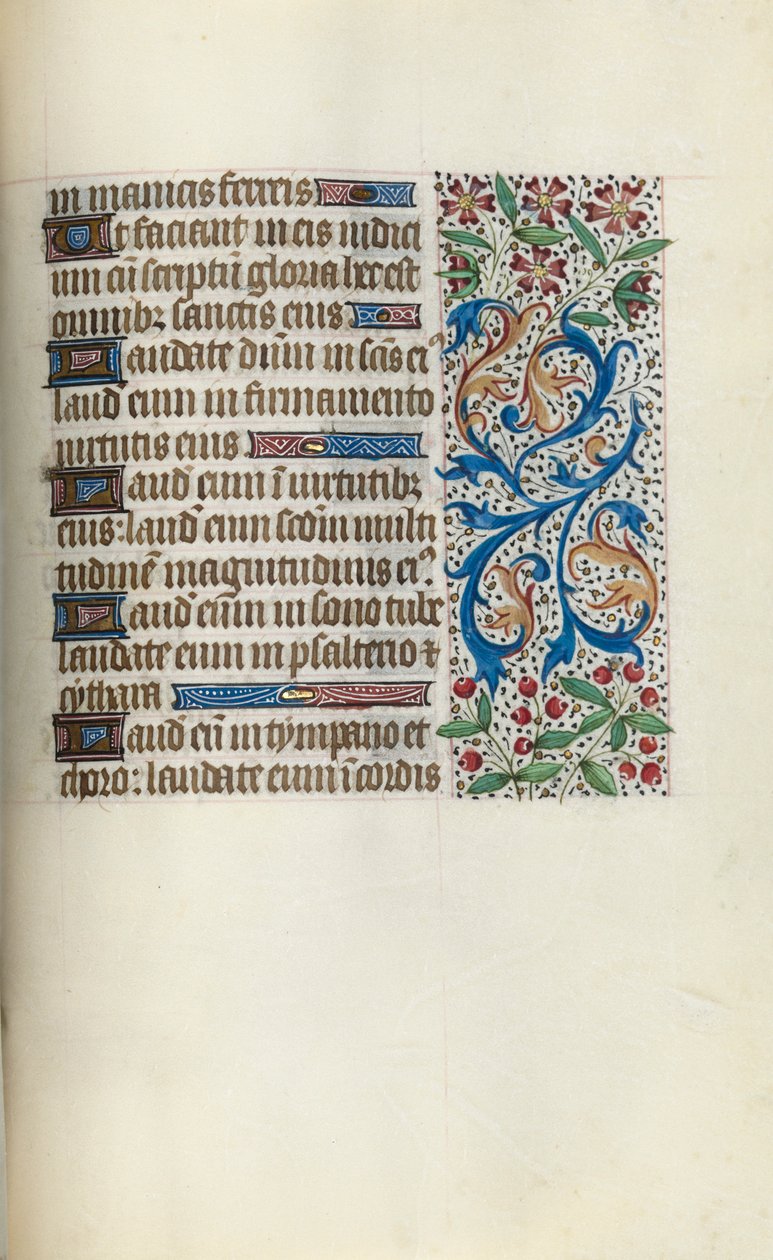 in manicis ferreis
Ut faciant in eis iudici
um cū scriptū gloria hec est
omnibꝫ sanctis eius
Laudate dūm in scīs eiꝰ
laud eum in firmamento
uirtutis eius
Laud̓ eum ī uirtutibꝫ
eius: laud̓ eum scd̄m multi
tudinē magnitudinis eiꝰ.
Laud̓ eūm in sono tube
laudate eum in psalterio ⁊
cythara
Laud̓ eū in tympano et
choro: laudate eum ī cordis